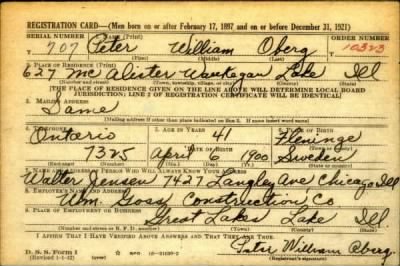 REGISTRATION CARD—(Men born on or after February 17, 1897 and on or before December 31, 1921)
SERIAL NUMBER 1. NAME (Print) ORDER NUMBER
T 707 Peter William Oberg 10323
(First) (Middle) (Last)
2. PLACE OF RESIDENCE (Print)
627 Mc Alister Waukegan Lake Ill
(Number and street) (Town, township, village, or city) (County) (State)
[THE PLACE OF RESIDENCE GIVEN ON THE LINE ABOVE WILL DETERMINE LOCAL BOARD
JURISDICTION; LINE 2 OF REGISTRATION CERTIFICATE WILL BE IDENTICAL]
3. MAILING ADDRESS
Same
[Mailing address if other than place indicated on line 2. If same insert word same]
4. TELEPHONE 5. AGE IN YEARS 6. PLACE OF BIRTH
Ontario 41 Fleninge
DATE OF BIRTH (Town or county)
7325 April 6 1900 Sweden
(Exchange) (Number) (Mo.) (Day) (Yr.) (State or country)
7. NAME AND ADDRESS OF PERSON WHO WILL ALWAYS KNOW YOUR ADDRESS
Walter Jensen 7427 Langley Ave Chicago Ill
8. EMPLOYER'S NAME AND ADDRESS
Wm Goss Construction Co
9. PLACE OF EMPLOYMENT OR BUSINESS
Great Lakes Lake Ill
(Number and street or R. F. D. number) (Town) (County) (State)
I AFFIRM THAT I HAVE VERIFIED ABOVE ANSWERS AND THAT THEY ARE TRUE.
D. S. S. Form 1
(Revised 1-1-42) GPO 16—21630-2
Peter William Oberg